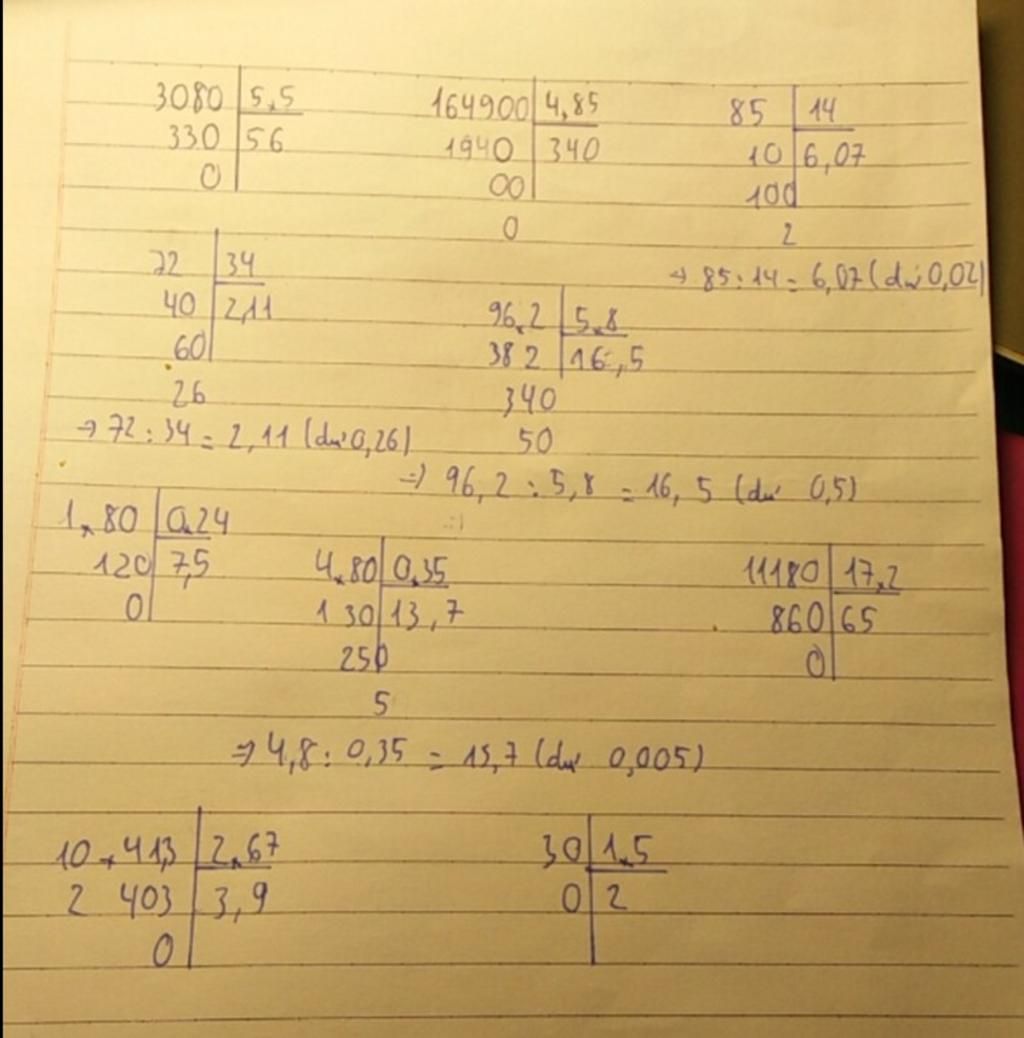 3080 5,5 164900 4,85 85 14
330 56 1940 340 10 6,07
0 00 100
0 2
72 34 → 85 : 14 = 6,07 (dư 0,02)
40 2,11 96,2 5,8
60 38 2 16,5
26 340
→ 72 : 34 = 2,11 (dư 0,26) 50
=) 96,2 : 5,8 = 16,5 (dư 0,5)
1,80 0,24
120 7,5 4,80 0,35 11180 17,2
0 1 30 13,7 860 65
250 0
5
⇒ 4,8 : 0,35 = 13,7 (dư 0,005)
10,41,3 2,67 30 1,5
2 403 3,9 0 2
0